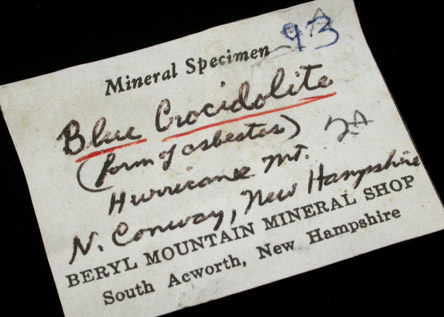 93
Mineral Specimen
Blue Crocidolite
(form of asbestos)
2A
Hurricane Mt.
N. Conway, New Hampshire
BERYL MOUNTAIN MINERAL SHOP
South Acworth, New Hampshire